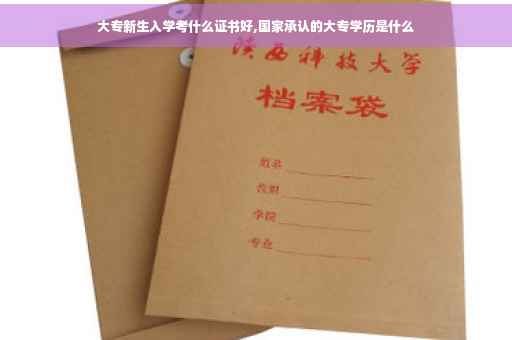 大专新生入学考什么证书好,国家承认的大专学历是什么
陕西科技大学
档案袋
姓名
性别
学院
专业